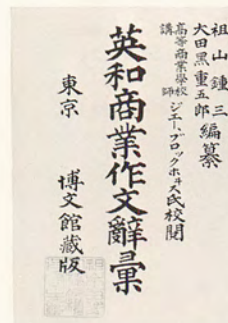 祖山鍾三
大田黒重五郎
編纂
高等商業學校
講師
ジエー、ブロックホヰス氏校閲
英和商業作文辭彙
東京
博文館藏版